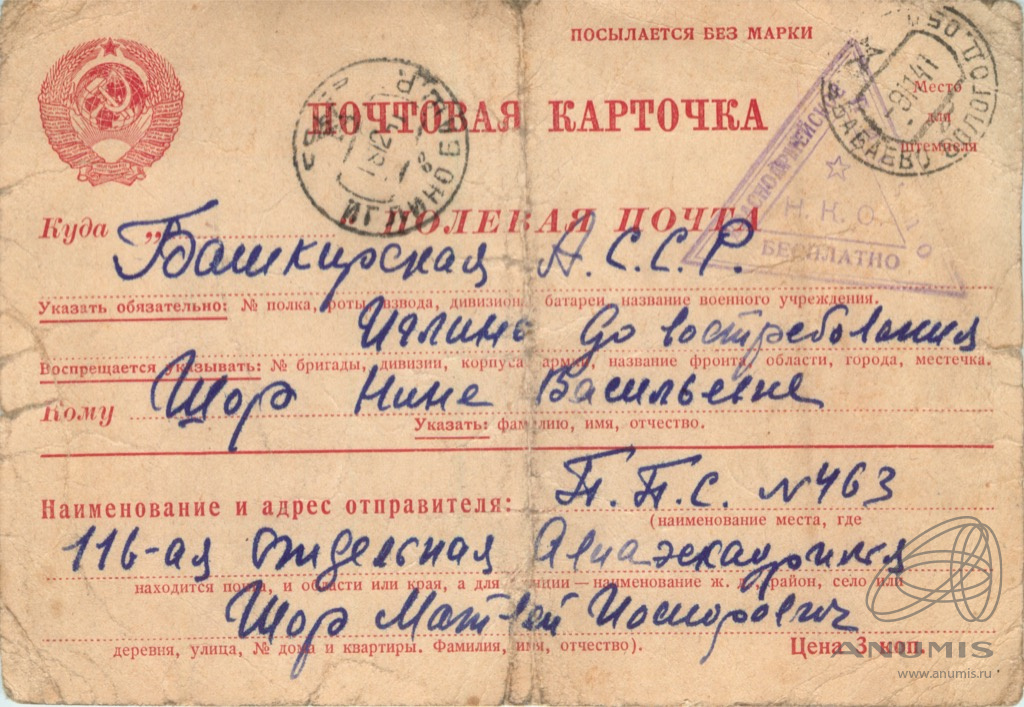 ПОСЫЛАЕТСЯ БЕЗ МАРКИ
ПОЧТОВАЯ КАРТОЧКА
Место
для
штемпеля
БАБАЕВО ВОЛОГОД. ОБЛ.
-8 11 41
ИГЛИНО БАШ
КРАСНОАРМЕЙСКОЕ
Н. К. О.
БЕСПЛАТНО
ПОЛЕВАЯ ПОЧТА
Куда „Башкирская А.С.С.Р.
Указать обязательно: № полка, роты, взвода, дивизион, батареи, название военного учреждения.
Иглино До востребования
Воспрещается указывать: № бригады, дивизии, корпуса, армии, название фронта, области, города, местечка.
Кому Шор Нине Васильевне
Указать: фамилию, имя, отчество.
Наименование и адрес отправителя: П.П.С. №463
(наименование места, где
116-ая отдельная Авиаэскадрилья
находится почта, и области или края, а для станции — наименование ж. д., район, село или
Шор Матвей Иосифович
деревня, улица, № дома и квартиры. Фамилия, имя, отчество).
Цена 3 коп.
ANUMIS
www.anumis.ru